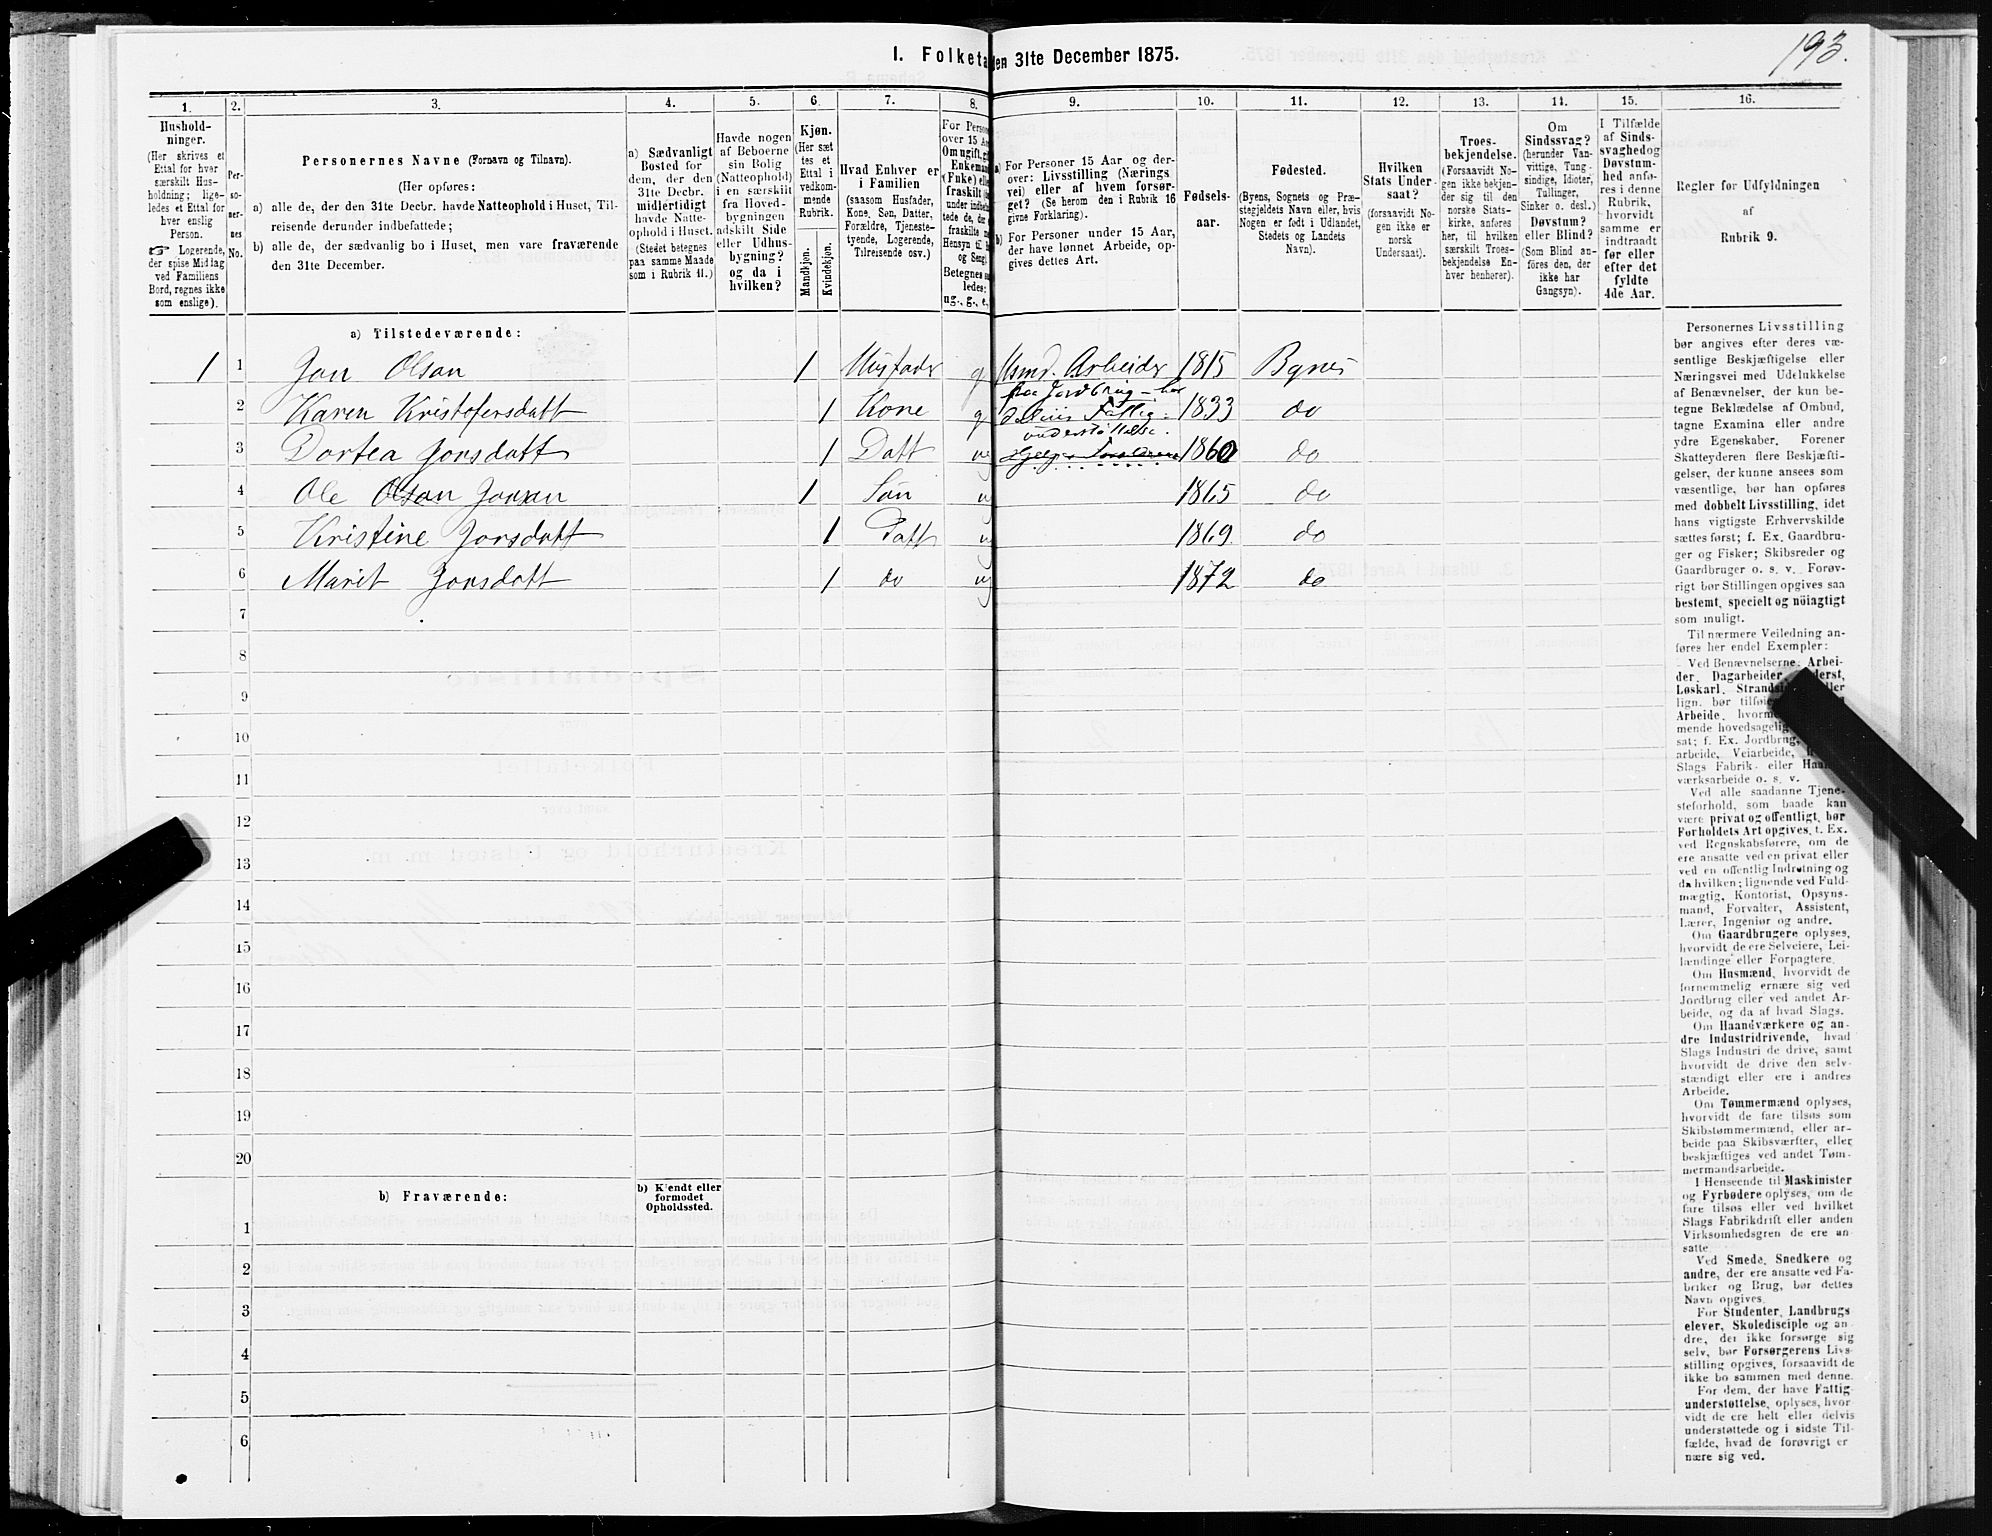 193.
1. Folketa
den 31te December 1875.
1.
Hushold-
ninger.
(Her skrives et
Ettal for hver
særskilt Hus-
holdning; lige-
ledes et Ettal for
hver enslig
Person.
☞ Logerende,
der spise Middag
ved Familiens
Bord, regnes ikke
som enslige).
2.
Per-
so-
ner-
nes
No.
3.
Personernes Navne (Fornavn og Tilnavn).
(Her opføres:
a) alle de, der den 31te Decbr. havde Natteophold i Huset, Til-
reisende derunder indbefattede;
b) alle de, der sædvanlig bo i Huset, men vare fraværende
den 31te December.
4.
a) Sædvanligt
Bosted for
dem, der den
31te Decbr.
midlertidigt
havde Natte-
ophold i Huset.
(Stedet betegnes
paa samme Maade
som i Rubrik 11.)
5.
Havde nogen
af Beboerne
sin Bolig
(Natteophold)
i en særskilt
fra Hoved-
bygningen
adskilt Side
eller Udhus-
bygning?
og da i
hvilken?
6.
Kjøn.
(Her sæt
tes et
Ettal i
vedkom-
mende
Rubrik.
Mandkjøn.
Kvindekjøn.
7.
Hvad Enhver er
i Familien
(saasom Husfader,
Kone, Søn, Datter,
Forældre, Tjeneste-
tyende, Logerende,
Tilreisende osv.)
8.
For Person
over 15 Aa
Om ugift, gif
Enkeman
(Enke) elle
fraskilt
Betegnes s
ledes:
ug., g., e.,
9.
a) For Personer 15 Aar og der-
over: Livsstilling (Nærings
vei) eller af hvem forsør-
get? (Se herom den i Rubrik 16
givne Forklaring).
b) For Personer under 15 Aar,
der have lønnet Arbeide, op-
gives dettes Art.
10.
Fødsels-
aar.
11.
Fødested.
(Byens, Sognets og Præ-
stegjeldets Navn eller, hvis
Nogen er født i Udlandet,
Stedets og Landets
Navn).
12.
Hvilken
Stats Under-
saat?
(forsaavidt No-
gen ikke er
norsk
Undersaat).
13.
Troes-
bekjendelse.
(Forsaavidt No-
gen ikke bekjen-
der sig til den
norske Stats-
kirke, anføres
her, til hvilken
særskilt Troes-
bekjendelse En-
hver henhører).
14.
Om
Sindssvag?
(herunder Van-
vittige, Tung-
sindige, Idioter,
Tullinger,
Sinker o. desl.)
Døvstum?
eller Blind?
(Som Blind an-
føres den, der
ikke har
Gangsyn).
15.
I Tilfælde
af Sinds-
svaghed og
Døvstum-
hed anfø-
res i denne
Rubrik,
hvorvidt
samme er
indtraadt
før eller
efter det
fyldte
4de Aar.
16.
Regler for Udfyldningen
af
Rubrik 9.
a) Tilstedeværende:
1 1 Jon Olsen 1 Husfader g Husmd. Arbeider 1815 Bynes
paa Jordbrug - har
2 Karen Kristofersdatt 1 Kone g delviis Fattig- 1833 do
understøttelse.
3 Dortea Jonsdatt 1 Datt ug Hjelper Forældrene 1860 do
4 Ole Olsen Jonsen 1 Søn ug 1865 do
5 Kristine Jonsdatt 1 Datt ug 1869 do
6 Marit Jonsdatt 1 do ug 1872 do
7
8
9
10
11
12
13
14
15
16
17
18
19
20
b) Fraværende:
b) Kjendt eller
formodet
Opholdssted.
1
2
3
4
5
6
Personernes Livsstilling
bør angives efter deres væ-
sentlige Beskjæftigelse eller
Næringsvei med Udelukkelse
af Benævnelser, der kun be-
tegne Beklædelse af Ombud,
tagne Examina eller andre
ydre Egenskaber. Forener
Skatteyderen flere Beskjæfti-
gelser, der kunne ansees som
væsentlige, bør han opføres
med dobbelt Livsstilling, idet
hans vigtigste Erhvervskilde
sættes først; f. Ex. Gaardbru-
ger og Fisker; Skibsreder og
Gaardbruger o. s. v. Forøv-
rigt bør Stillingen opgives saa
bestemt, specielt og nöiagtigt
som muligt.
Til nærmere Veiledning an-
føres her endel Exempler:
Ved Benævnelserne: Arbei-
der, Dagarbeider,
Løskarl, Strands
lign. bør tilføi
Arbeide, hvorm
mende hovedsagelig
sat; f. Ex. Jordbrug,
arbeide, Veiarbeide,
Slags Fabrik- eller
værksarbeide o. s. v.
Ved alle saadanne Tjene-
steforhold, som baade kan
være privat og offentligt, bør
Forholdets Art opgives, t. Ex.
ved Regnskabsførere, om de
ere ansatte ved en privat eller
ved en offentlig Indretning og
da hvilken; lignende ved Fuld-
mægtig, Kontorist, Opsyns-
mand, Forvalter, Assistent,
Lærer, Ingeniør og andre.
Om Gaardbrugere oplyses,
hvorvidt de ere Selveiere, Lei-
lændinge eller Forpagtere.
Om Husmænd, hvorvidt de
fornemmelig ernære sig ved
Jordbrug eller ved andet Ar-
beide, og da af hvad Slags.
Om Haandværkere og an-
dre Industridrivende, hvad
Slags Industri de drive, samt
hvorvidt de drive den selv-
stændigt eller ere i andres
Arbeide.
Om Tømmermænd oplyses,
hvorvidt de fare tilsøs som
Skibstømmermænd, eller ar-
beide paa Skibsværfter, eller
beskjæftiges ved andet Tøm-
mermandsarbeide.
I Henseende til Maskinister
og Fyrbødere oplyses, om de
fare tilsøs eller ved hvilket
Slags Fabrikdrift eller anden
Virksomhedsgren de ere an-
satte
Ved Smede, Snedkere og
andre, der ere ansatte ved Fa-
briker og Brug, bør dettes
Navn opgives.
For Studenter, Landbrugs
elever, Skoledisciple og an-
dre, der ikke forsørge sig
selv, bør Forsørgerens Livs-
stilling opgives, forsaavidt de
ikke bo sammen med denne.
For dem, der have Fattig-
understøttelse, oplyses, hvor-
vidt de ere helt eller delvis
understøttede og i sidste Til-
fælde, hvad de forøvrigt er
nære sig ved.